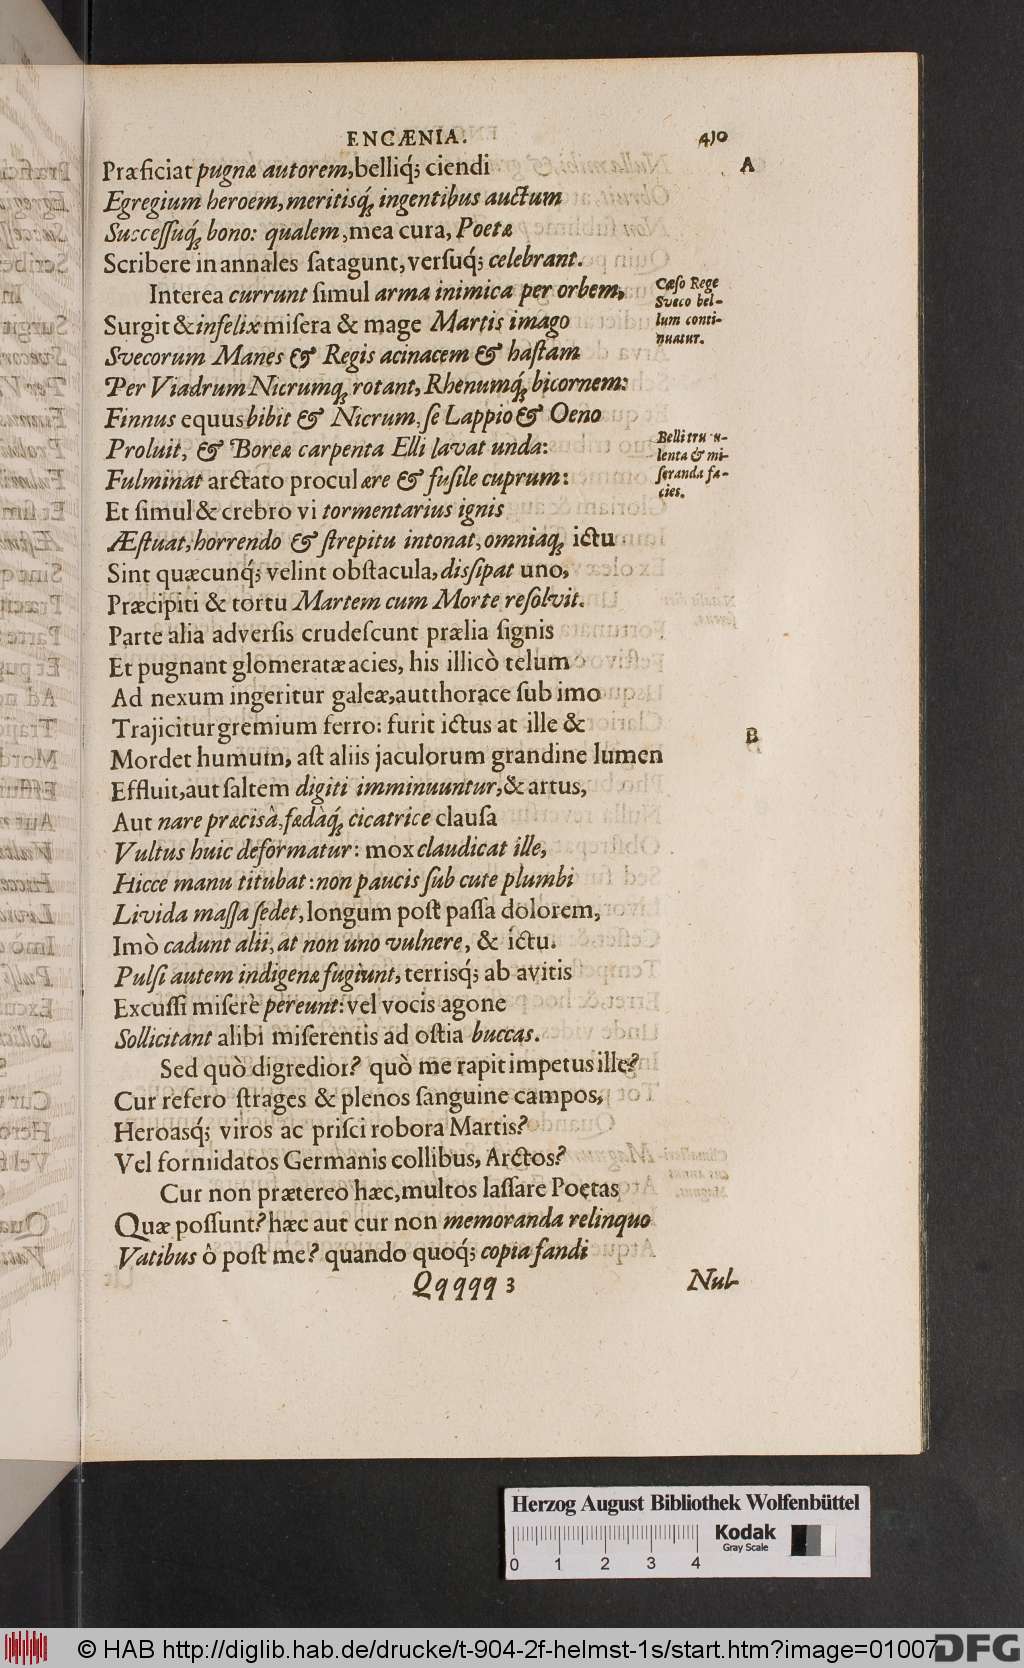 ENCÆNIA.
410
A
Præficiat pugnæ autorem, belliq́; ciendi
Egregium heroem, meritisq́; ingentibus auctum
Succeſſuq́; bono: qualem, mea cura, Poetæ
Scribere in annales ſatagunt, verſuq́; celebrant.
Interea currunt ſimul arma inimica per orbem,
Cæſo Rege
Sveco bel-
lum conti-
nuatur.
Surgit & infelix miſera & mage Martis imago
Svecorum Manes & Regis acinacem & haſtam
Per Viadrum Nicrumq́; rotant, Rhenumq́; bicornem:
Finnus equus bibit & Nicrum, ſe Lappio & Oeno
Proluit, & Boreæ carpenta Elli lavat unda:
Belli tru u-
lenta & mi-
ſeranda fa-
cies.
Fulminat arctato procul ære & fuſile cuprum:
Et ſimul & crebro vi tormentarius ignis
Æſtuat, horrendo & ſtrepitu intonat, omniaq́; ictu
Sint quæcunq́; velint obſtacula, diſſipat uno,
Præcipiti & tortu Martem cum Morte reſolvit.
Parte alia adverſis crudeſcunt prælia ſignis
Et pugnant glomeratæ acies, his illicò telum
Ad nexum ingeritur galeæ, aut thorace ſub imo
Trajicitur gremium ferro: furit ictus at ille &
B
Mordet humum, aſt aliis jaculorum grandine lumen
Effluit, aut ſaltem digiti imminuuntur, & artus,
Aut nare præcisà, fœdàq́; cicatrice clauſa
Vultus huic deformatur: mox claudicat ille,
Hicce manu titubat: non paucis ſub cute plumbi
Livida maſſa ſedet, longum poſt paſſa dolorem,
Imò cadunt alii, at non uno vulnere, & íctu.
Pulſi autem indigenæ fugiunt, terrisq́; ab avitis
Excuſſi miſerè pereunt: vel vocis agone
Sollicitant alibi miſerentis ad oſtia buccas.
Sed quò digredior? quò me rapit impetus ille?
Cur refero ſtrages & plenos ſanguine campos,
Heroasq́; viros ac priſci robora Martis?
Vel formidatos Germanis collibus, Arctos?
Cur non prætereo hæc, multos laſſare Poetas
Quæ poſſunt? hæc aut cur non memoranda relinquo
Vatibus ô poſt me? quando quoq́; copia fandi
Qqqqq 3
Nul-
Herzog August Bibliothek Wolfenbüttel
Kodak
Gray Scale
0 1 2 3 4
© HAB http://diglib.hab.de/drucke/t-904-2f-helmst-1s/start.htm?image=01007
DFG